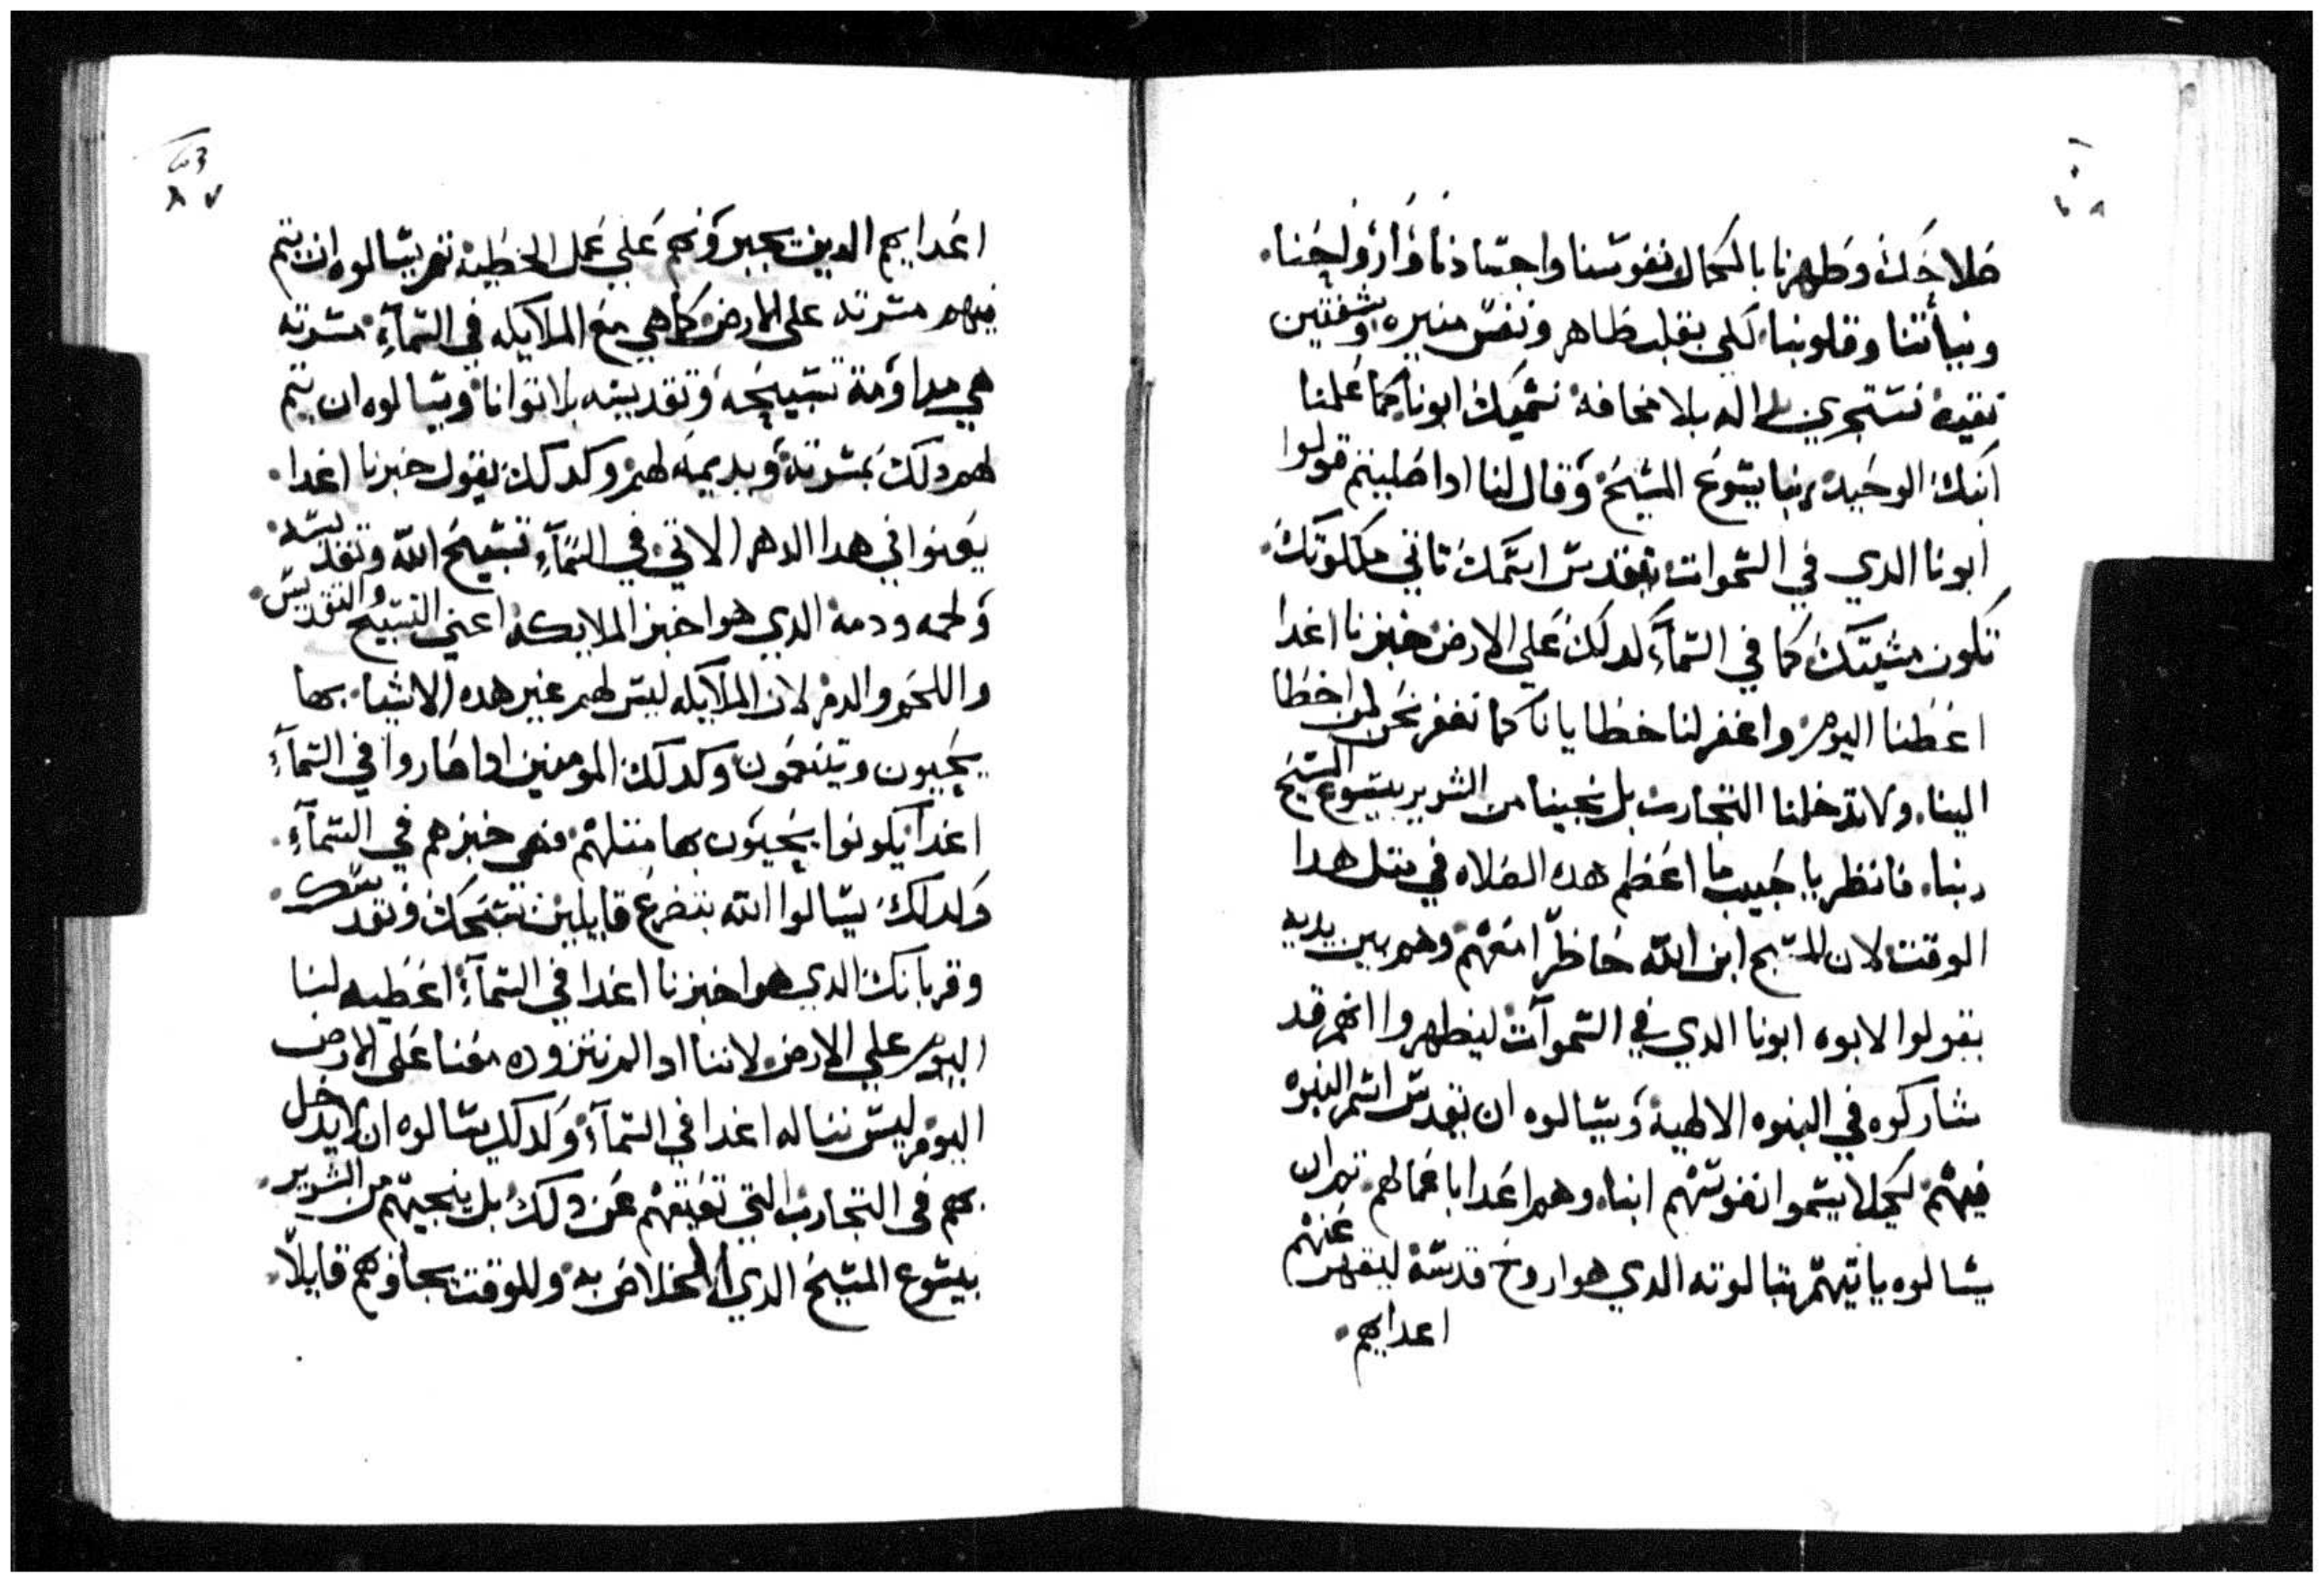 صلاحك وطهرنا بالكمال نفوسنا واجسادنا وارواحنا.
ونياتنا وقلوبنا لكي بقلب طاهر ونفس منيره وشفتين
نقيه نستجري ياالله بلا مخافه نسميك ابونا كما علمنا
ابنك الوحيد ربنا يسوع المسيح وقال لنا ادا صليتم قولوا
ابونا الدي في السموات يتقدس اسمك تاتي ملكوتك.
تكون مشيتك كما في السمآء كدلك علي الارض خبزنا اغدا
اعطنا اليوم واغفر لنا خطايانا كما نغفر نحن لمن اخطا
الينا. ولا تدخلنا التجارب بل نجينا من الشرير بيسوع المسيح
ربنا. فانظر يا حبيب ما اعظم هده الصلاه في متل هدا
الوقت لان المسيح ابن الله حاظرا معهم وهم بين يديه
يقولوا لابوه ابونا الدي في السموآت ليظهروا انهم قد
شاركوه في البنوه الالهية ويسالوه ان يتقدس اسم البنوه
فيهم لكيلا يسموا نفوسهم ابنا. وهم اعدا باعمالهم تم ان
يسالوه ياتيهم بتالوته الدي هوا روح قدسه ليقهر عنهم
اعدايهم.
63
٨٧
اعدايهم الدين يجبروهم علي عمل الخطيه تم يسالوه ان يتم
فيهم مسرته علي الارض كما هي مع الملايكه في السمآء مسرته
هي مداومة تسبيحه وتقديسه بلا توانا ويسالوه ان يتم
لهم دلك بمسرته ويديمه لهم وكدلك يقول خبزنا اغدا.
يعنوا في هدا الدهر الاتي في السمآء تسبيح الله وتقديسه.
ولحمه ودمه الدي هوا خبز الملايكه اعني التسبيح والتقديس.
واللحم والدم لان الملايكه ليس لهم غير هده الاشيا. بها
يحييون ويتنعمون وكدلك المومنين ادا صاروا في السمآء
اغدا يكونوا يحييون بها متلهم فهي خبزهم في السمآء.
وكدلك يسالوا الله بتضرع قايلين تسبحك وتقديسك.
وقربانك الدي هوا خبزنا اغدا في السمآء اعطيه لنا
اليوم علي الارض لاننا ادا لم نتزوده معنا علي الارض
اليوم ليس نناله اغدا في السمآء وكدلك يسالوه ان لا يدخل
بهم في التجارب التي تعيقهم عن دلك بل ينجيهم من الشرير.
بيسوع المسيح الدي الخلاص به وللوقت يجاوبهم قايلاً.